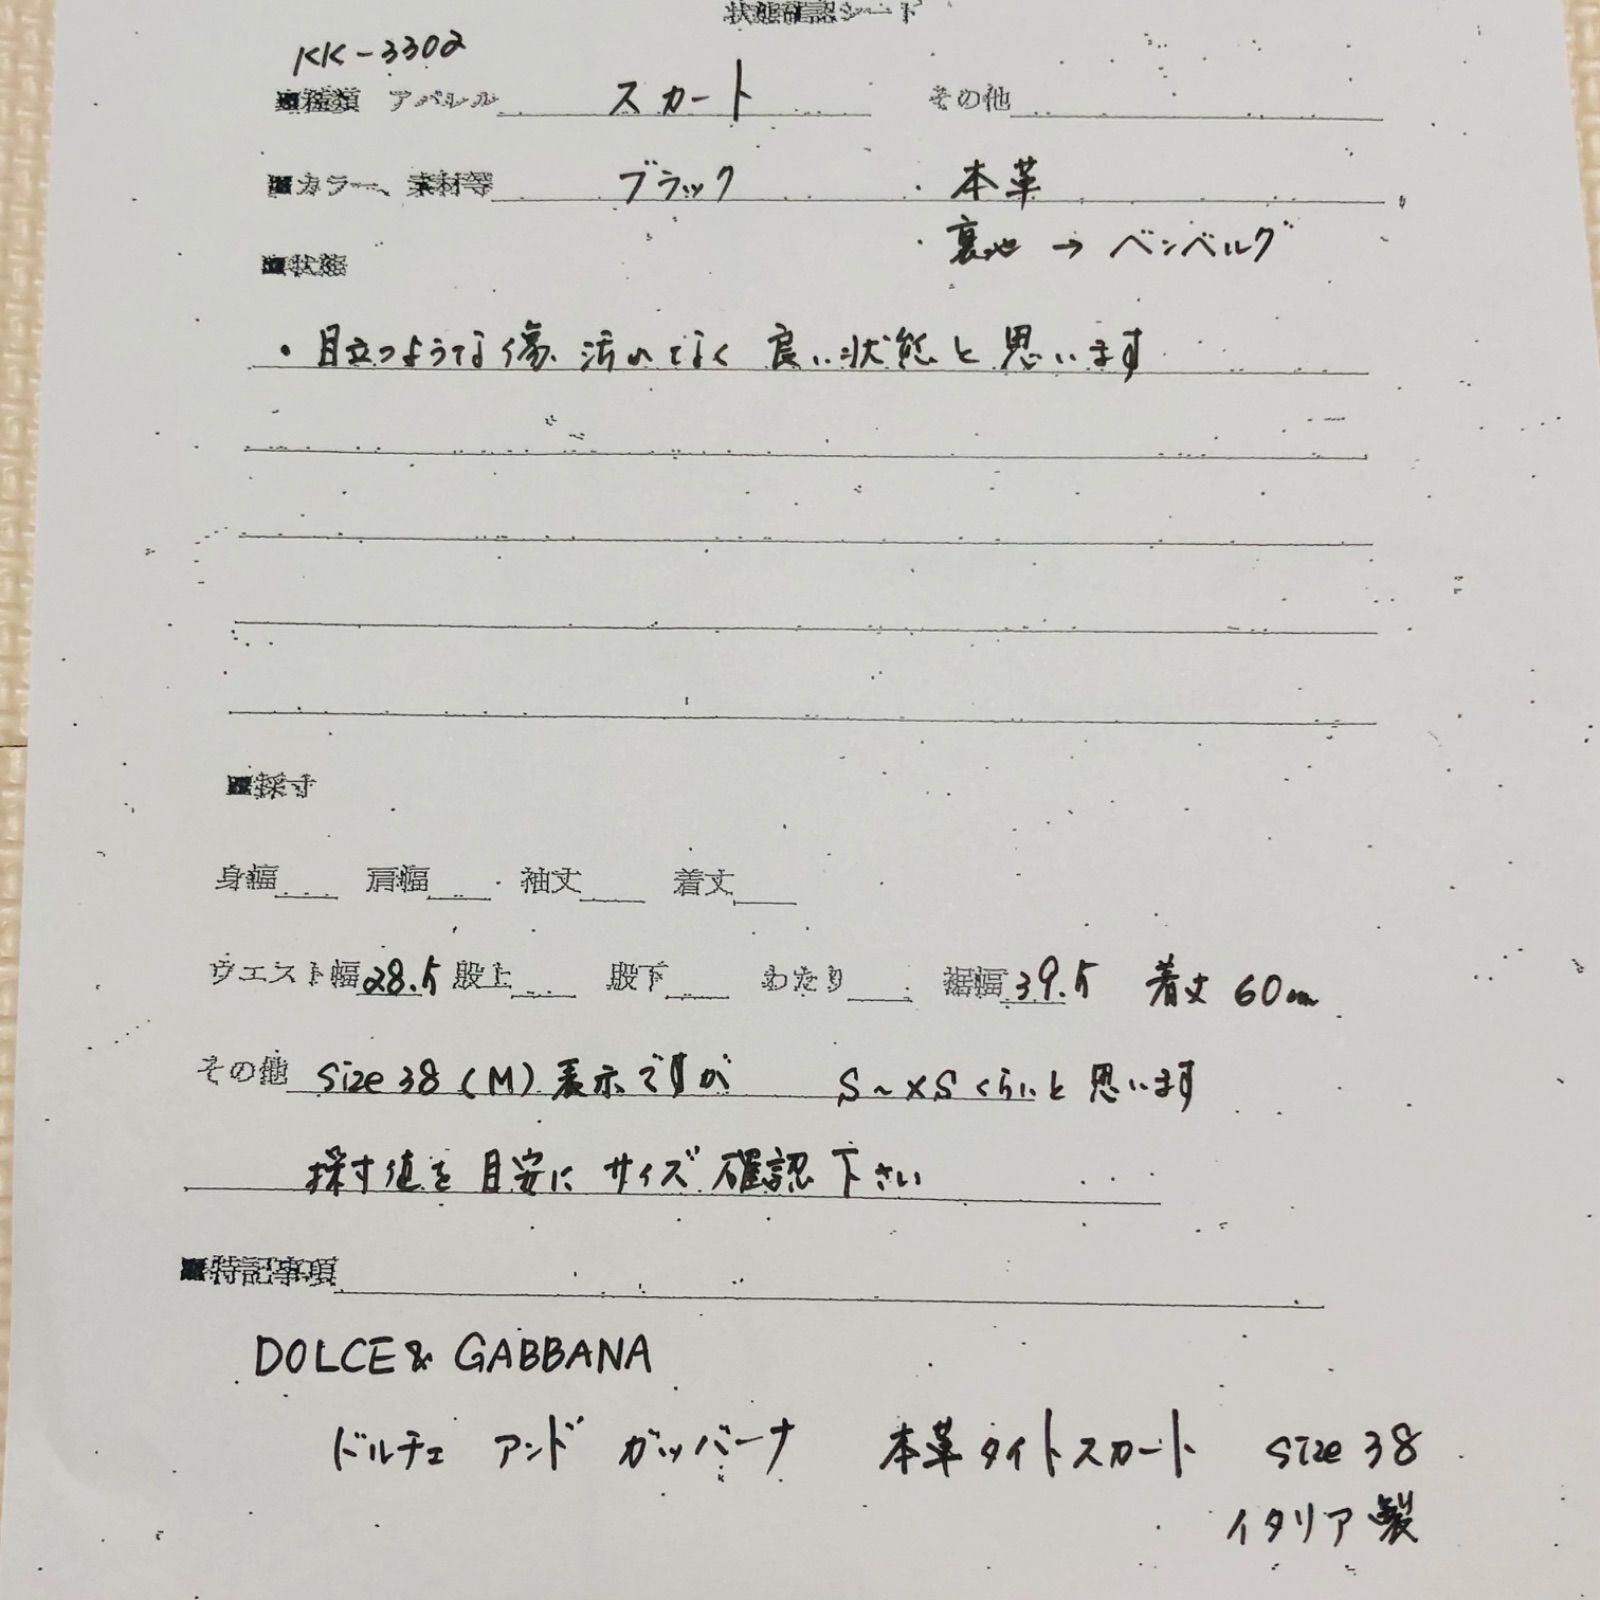 状態確認シート
KK-3302
■種類 アパレル スカート その他
■カラー、素材等 ブラック ・本革
・裏地→ベンベルグ
■状態
・目立つような傷、汚れなく 良い状態と思います
■採寸
身幅 肩幅 袖丈 着丈
ウエスト幅28.5 股上 股下 わたり 裾幅39.5 着丈60cm
その他 size38(M)表示ですが S~XSくらいと思います
採寸値を目安に サイズ確認下さい
■特記事項
DOLCE & GABBANA
ドルチェ アンド ガッバーナ 本革タイトスカート size 38
イタリア製